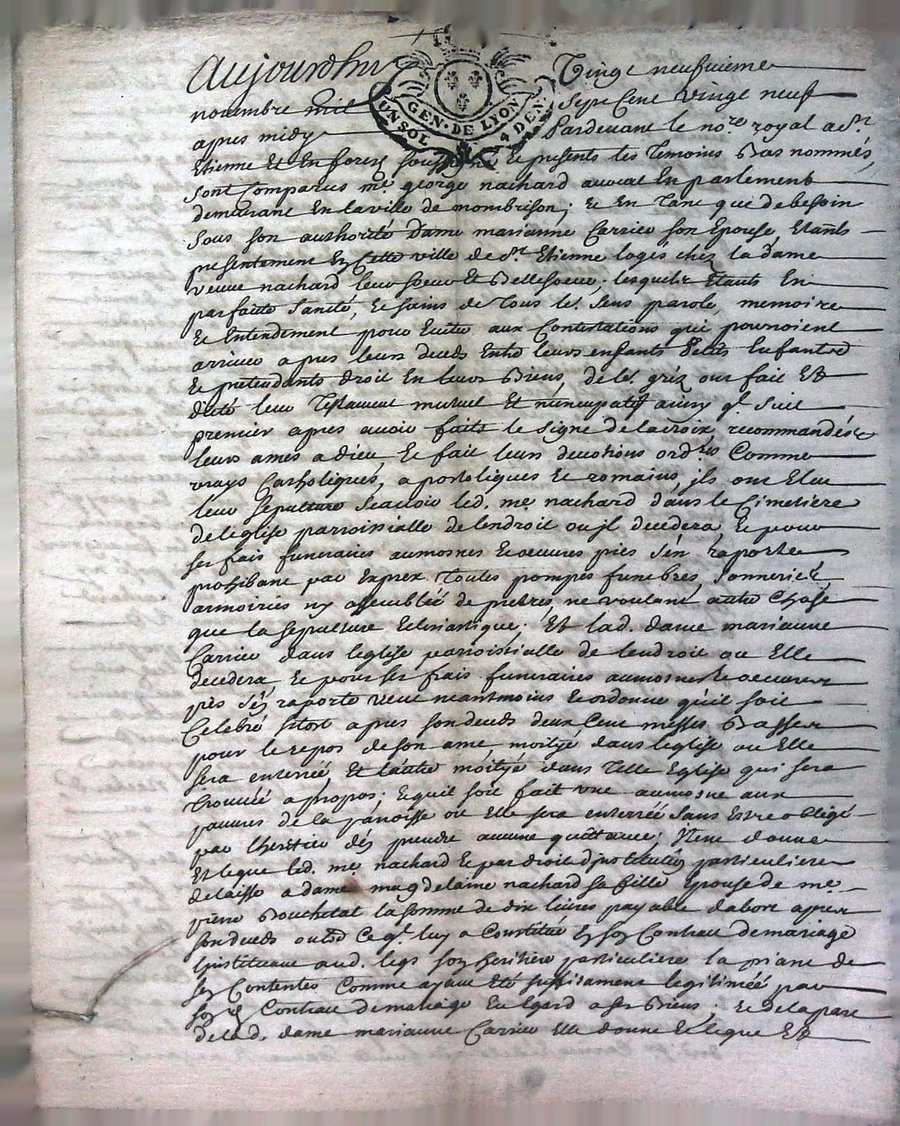 Aujourdhuy Vingt neufvieme
GEN. DE LYON
UN SOL 4 DEN.
novembre mil sept cent vingt neuf
apres midy Pardevant le nore. royal a St.
Etienne et En forez soussigné Et presents les Temoins Bas nommés,
sont comparus me. george nachard avocat En parlement
demeurant En la ville de monbrison; Et En Tant que de besoin
sous son authorité Dame marianne Carrier son Epouse Etants
presentement En Cette ville de St. Etienne logés chez la dame
veuve nachard leur soeur et Belle soeur. lesquels Etants En
parfaite santé, Et sains de Tous les sens parole, memoire
Et Entendement pour Eviter aux Contestations qui pourroient
arriver apres leurs deceds Entre leurs enfants Petits Enfants
Et pretendants droit En leurs Biens, de les grez ont fait Et
dicté leur Testament mutuel Et nuncupatif ainsy q. suit
premier apres avoir faits le signe de la croix recommandés
leurs ames a dieu Et fait leurs devotions ordres Comme
vrays Catholiques, apostoliques Et romains, ils ont Eleu
leur sepulture scavoir led. me. nachard dans le Cimetiere
de leglise parroissialle de lendroit ou jl decedera, Et pour
ses frais funeraires aumosnes Et oeuvres pies s'en raporte
prohibant par Exprex Toutes pompes funebres, sonneries,
armoiries ny assemblée de prêtres, ne voulant autre Chose
que la sepulture Eclesiastique. Et lad. dame marianne
Carrier dans leglise parroissialle de lendroit ou Elle
decedera Et pour ses frais funeraires aumosnes Et oeuvres
pies s'en raporte veut neantmoins Et ordonne qu'il soit
Celebré sitost apres son deceds deux Cent messes Basses
pour le repos de son ame moityé dans leglise ou Elle
sera enterrée Et lautre moityé dans Telle Eglise qui sera
Trouvée a propos; Et quil soit fait une aumosne aux
pauvres de la paroisse ou Elle sera enterrée sans Estre obligé
par lheritier d'en prendre aucune quittance; Item donne
Et legue led. me. nachard Et par droit d'institution particuliere
delaisse a dame magdelaine nachard sa fille Epouse de me.
pierre Bouchetal la somme de dix livres payable dabort apres
son deceds outre Ce q. luy a Constitué En son Contrac de mariage
linstituant aud. legs son heritiere particuliere la priant de
s'en Contenter Comme ayant Eté suffisament legitimée par
Contrac de mariage En Egard a ses Biens; Et de la part
de lad. dame marianne Carrier Elle donne Et legue Et